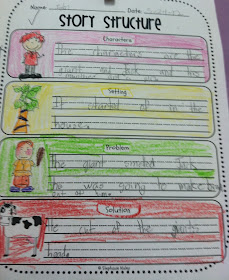 Name: Date:
Story Structure
Characters
The characters are the
giant and Jack and the
Setting
It started of in the
house.
Problem
The giant smelled Jack
he was going to make
out of him
Solution
He cut of the giants
head.